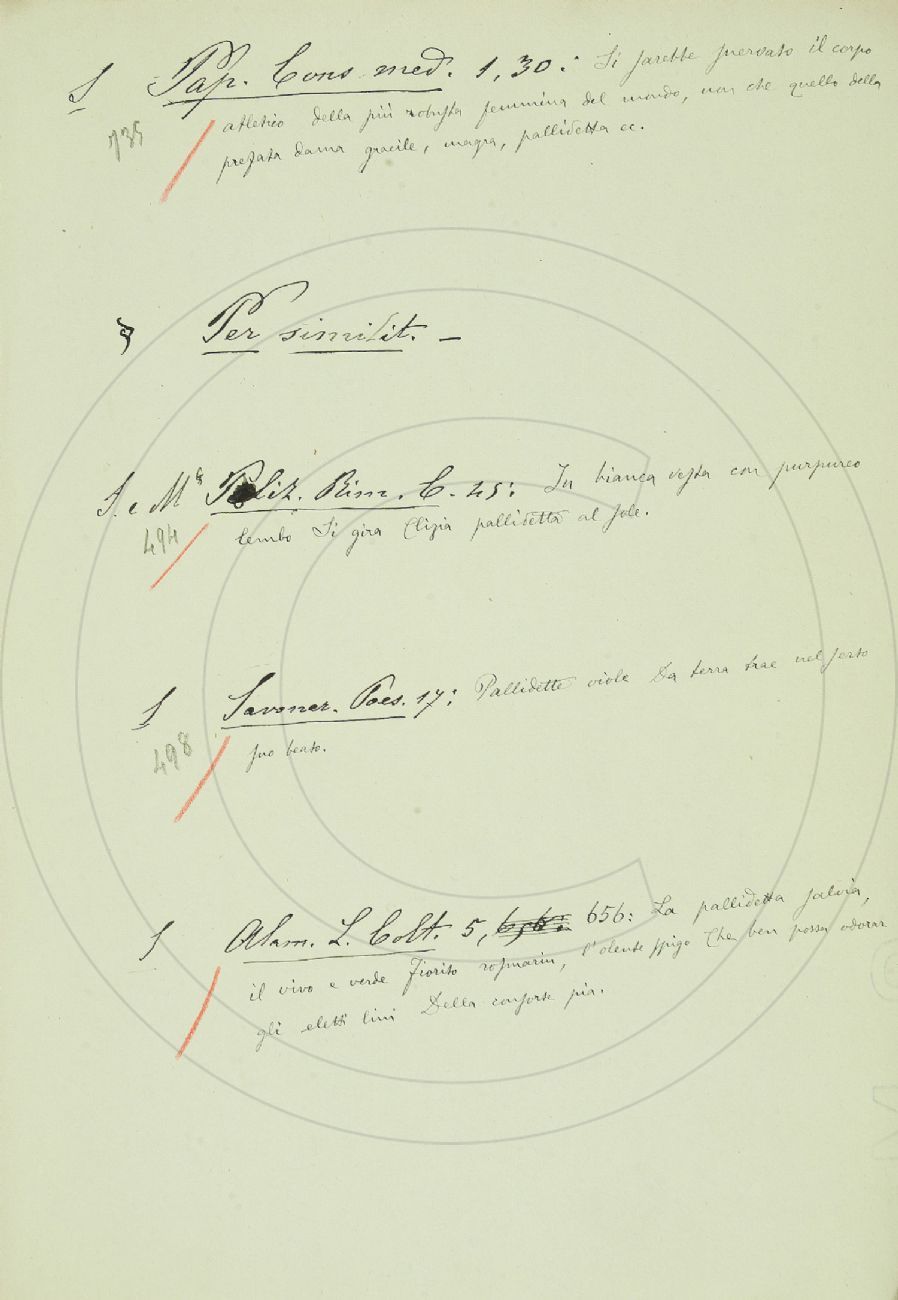 S Pap. Cons. med. 1, 30: Si sarebbe snervato il corpo
735 atletico della più robusta femmina del mondo, non che quello della
prefata dama gracile, magra, pallidetta ec.
§ Per similit. –
S. e Mª Poliz. Rim. C. 45: In bianca vesta con purpureo
494 lembo Si gira Clizia pallidetta al sole.
S Savoner. Poes. 17: Pallidette viole Da terra trae nel sesto
498 suo beato.
S Alam. L. Colt. 5, 656: 656: La pallidetta salvia,
il vivo e verde Fiorito rosmarin, l'olente spigo Che ben possa odorar
gli eletti lini Della consorte pia.